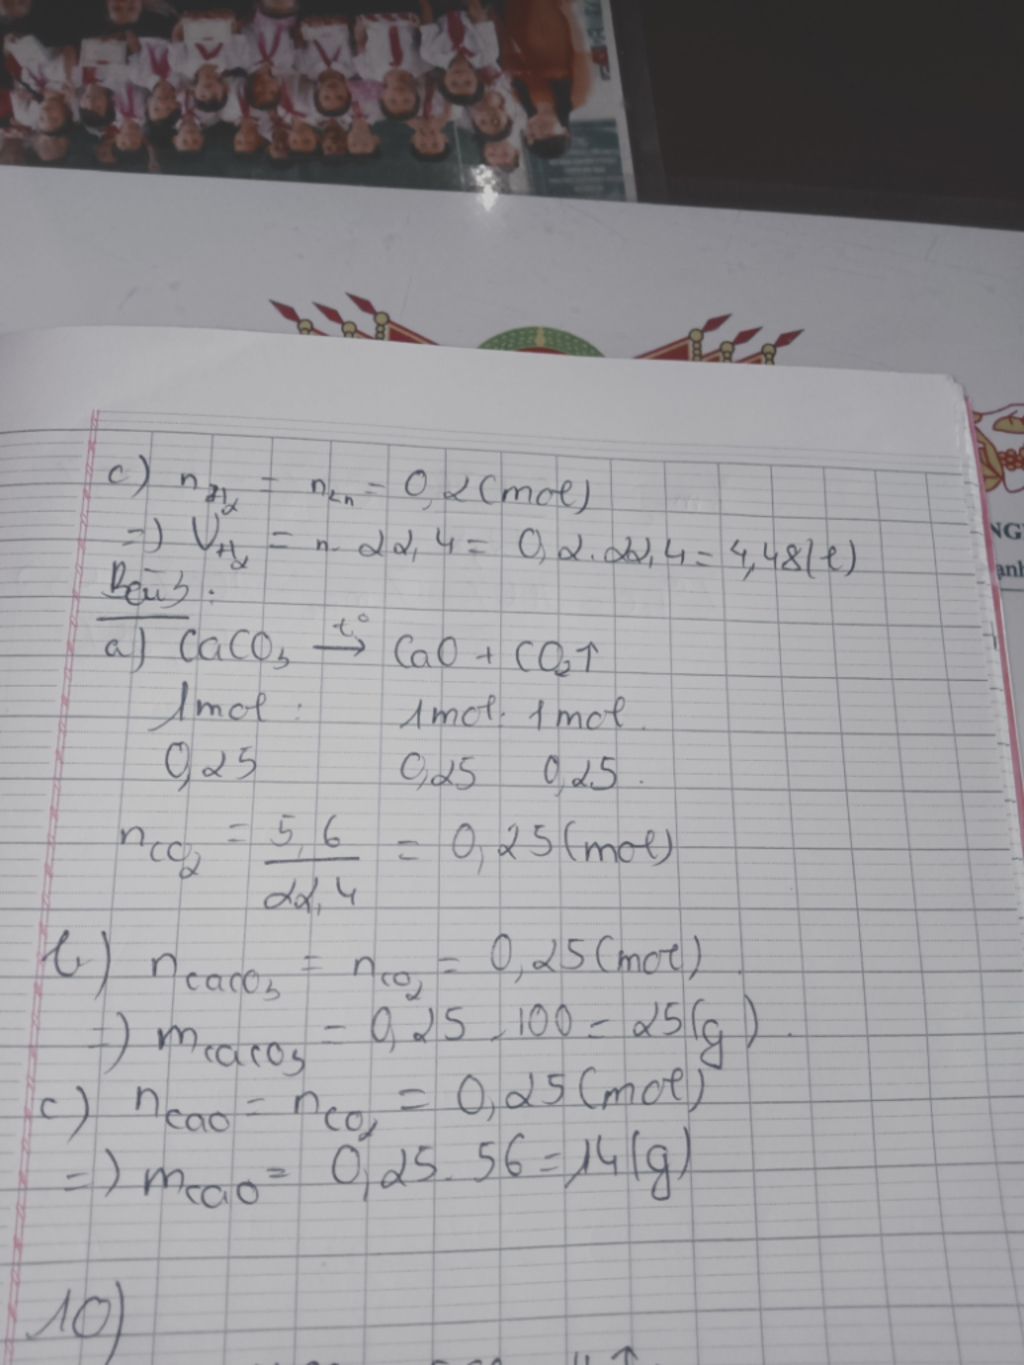 c) nH₂ = nZn = 0,2 (mol)
=) VH₂ = n. 22,4 = 0,2.22,4 = 4,48 (l)
NG
anh
Bài 3:
a) CaCO₃ —t°→ CaO + CO₂↑
1mol : 1mol. 1mol.
0,25 0,25 0,25.
nCO₂ = 5,6 / 22,4 = 0,25 (mol)
b) nCaCO₃ = nCO₂ = 0,25 (mol)
=) mCaCO₃ = 0,25 . 100 = 25 (g).
c) nCaO = nCO₂ = 0,25 (mol)
=) mCaO = 0,25. 56 = 14 (g)
10)